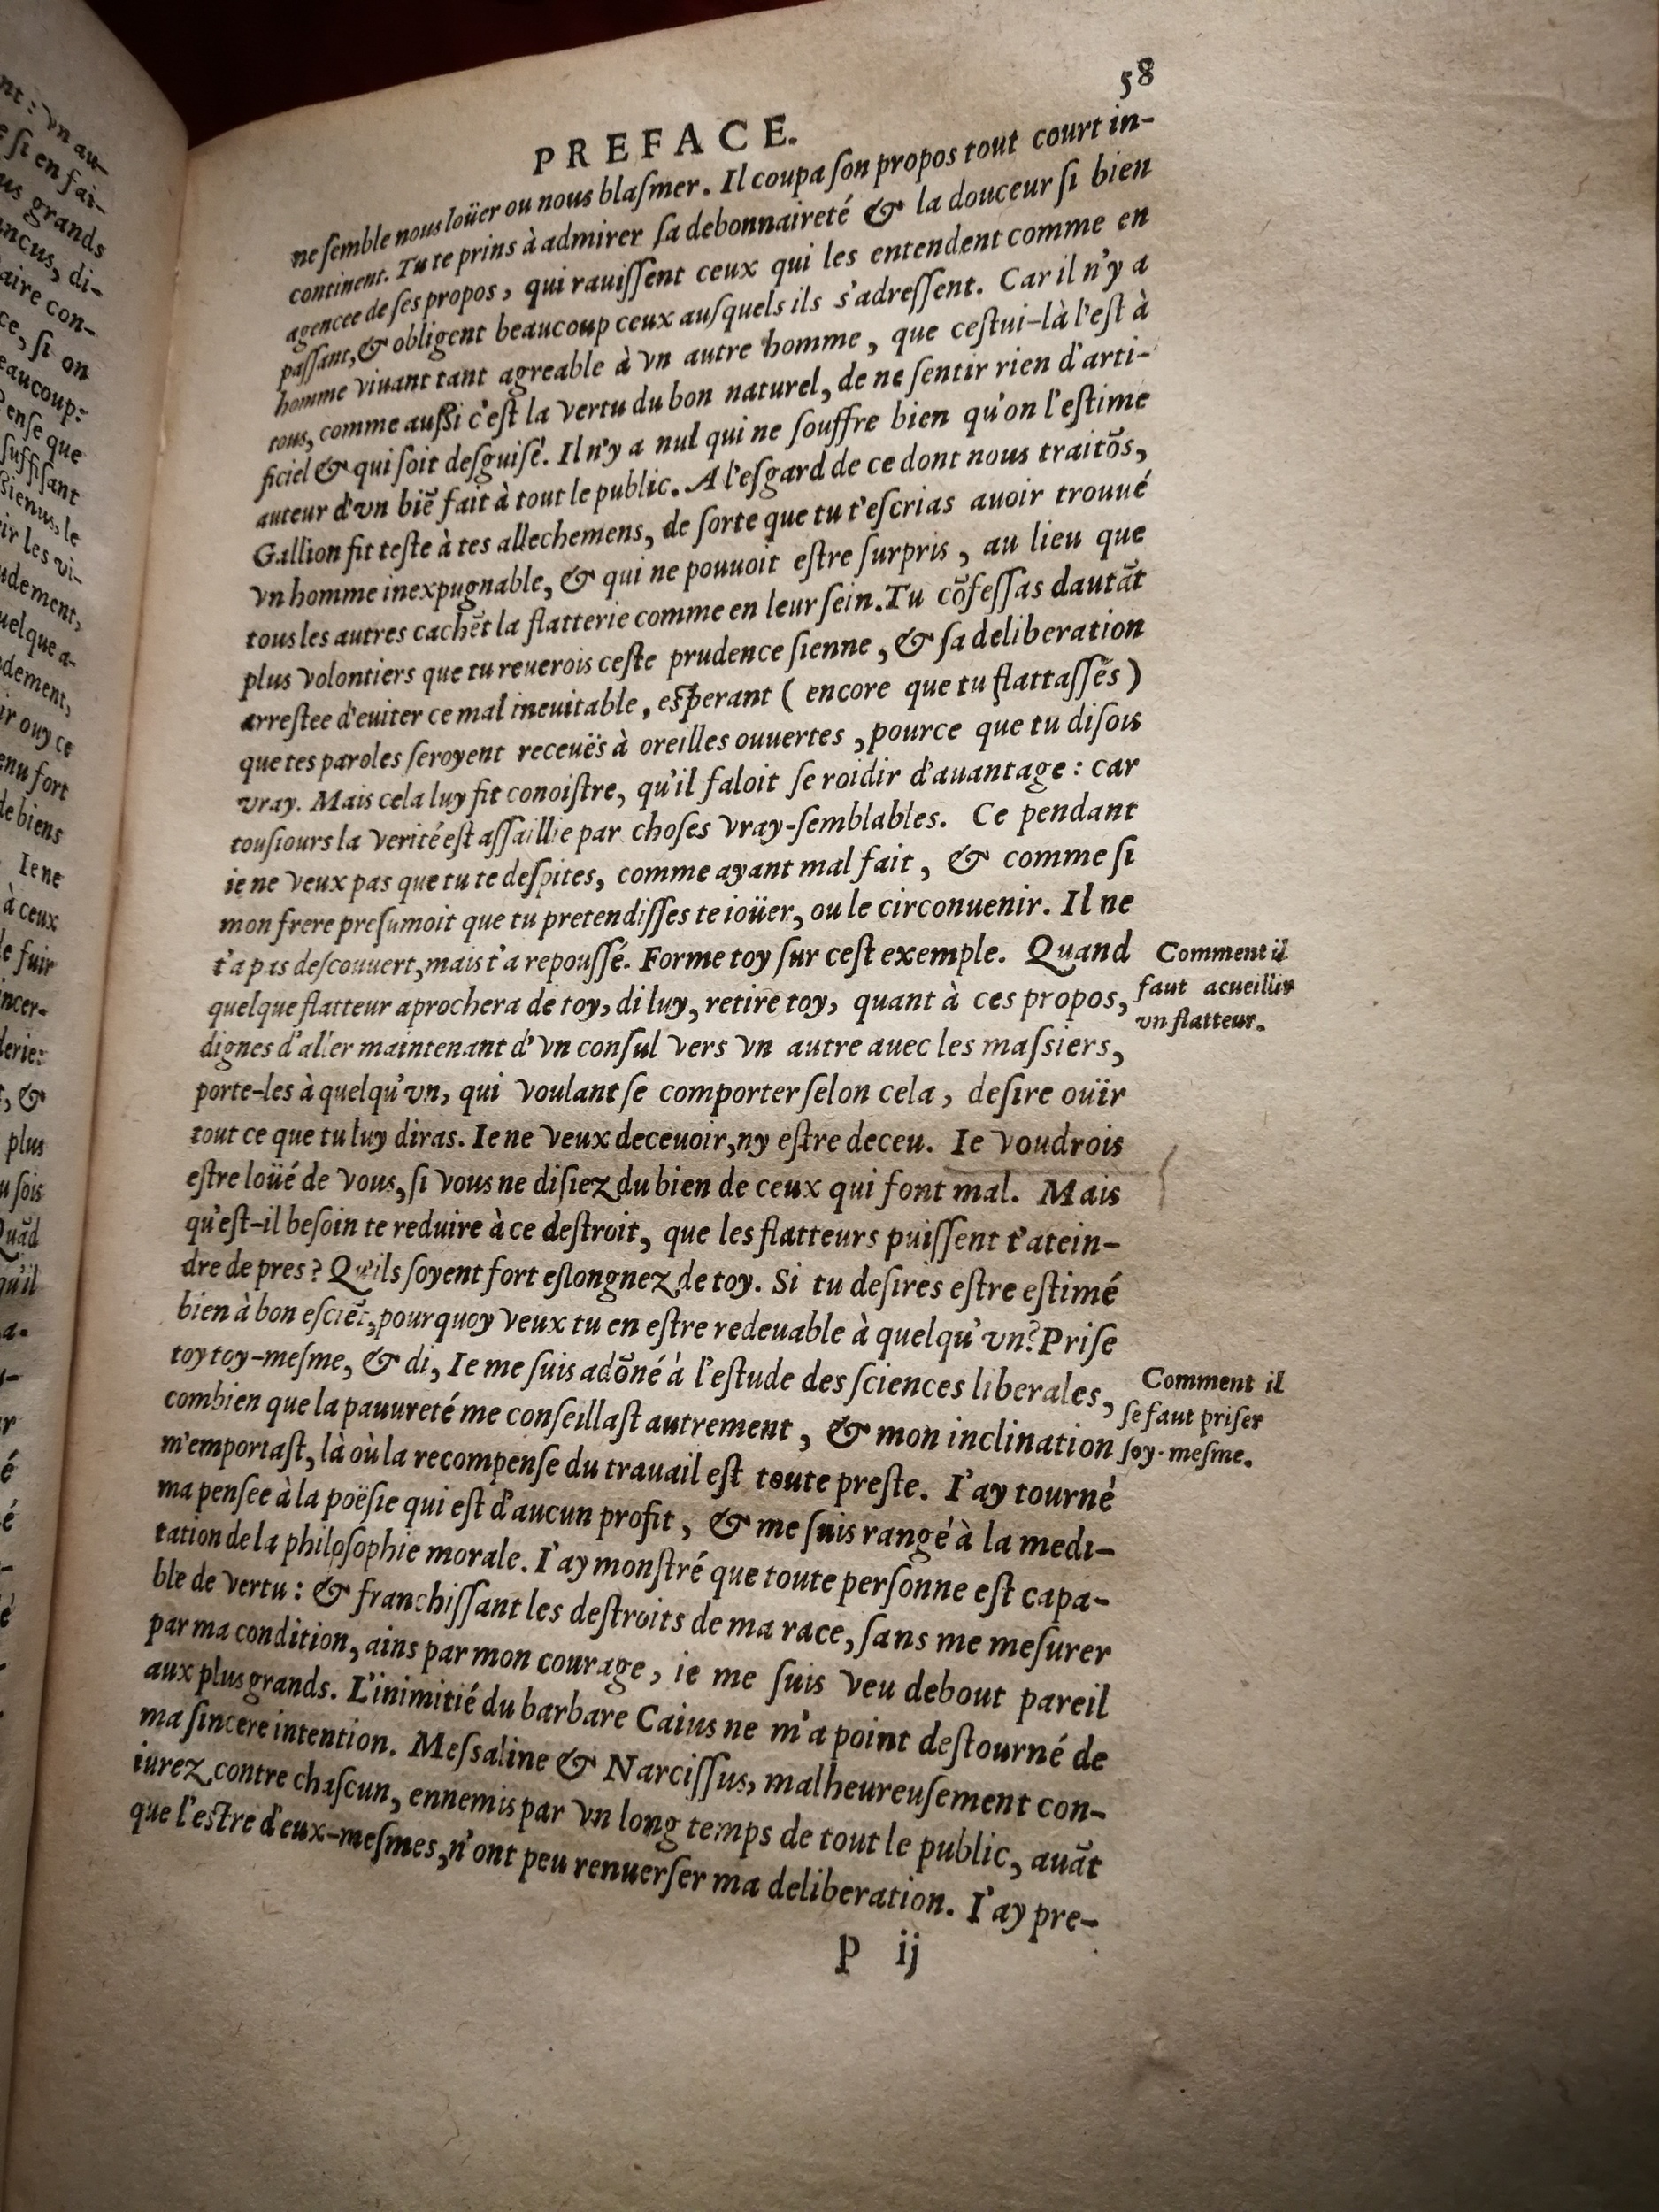 nt: vn au-
e ſi en fai-
us grands
ncus, di-
aire con-
ce, ſi on
eaucoup:
Penſe que
ſuffiſant
ßienus, le
ir les vi-
udement,
uelque a-
dement,
ir ouy ce
enu fort
de biens
Ie ne
à ceux
le fuir
ncer-
derie:
t, &
plus
u ſois
Quād
qu'il
58
PREFACE.
ne ſemble nous loüer ou nous blaſmer. Il coupa ſon propos tout court in-
continent. Tu te prins à admirer ſa debonnaireté & la douceur ſi bien
agencee de ſes propos, qui rauiſſent ceux qui les entendent comme en
paſſant, & obligent beaucoup ceux auſquels ils s'adreſſent. Car il n'y a
homme viuant tant agreable à vn autre homme, que ceſtui-là l'eſt à
tous, comme außi c'eſt la vertu du bon naturel, de ne ſentir rien d'arti-
ficiel & qui ſoit deſguiſé. Il n'y a nul qui ne ſouffre bien qu'on l'eſtime
auteur d'vn biē fait à tout le public. A l'eſgard de ce dont nous traitōs,
Gallion fit teſte à tes allechemens, de ſorte que tu t'eſcrias auoir trouué
vn homme inexpugnable, & qui ne pouuoit eſtre ſurpris, au lieu que
tous les autres cachēt la flatterie comme en leur ſein. Tu cōfeſſas dautāt
plus volontiers que tu reuerois ceſte prudence ſienne, & ſa deliberation
arreſtee d'euiter ce mal ineuitable, eſperant ( encore que tu flattaſſes )
que tes paroles ſeroyent receuës à oreilles ouuertes, pource que tu diſois
vray. Mais cela luy fit conoiſtre, qu'il faloit ſe roidir d'auantage: car
touſiours la verité eſt aſſaillie par choſes vray-ſemblables. Ce pendant
ie ne veux pas que tu te deſpites, comme ayant mal fait, & comme ſi
mon frere preſumoit que tu pretendiſſes te ioüer, ou le circonuenir. Il ne
t'a pas deſcouuert, mais t'a repouſſé. Forme toy ſur ceſt exemple. Quand
quelque flatteur aprochera de toy, di luy, retire toy, quant à ces propos,
dignes d'aller maintenant d'vn conſul vers vn autre auec les maſsiers,
porte-les à quelqu'vn, qui voulant ſe comporter ſelon cela, deſire ouïr
tout ce que tu luy diras. Ie ne veux deceuoir, ny eſtre deceu. Ie voudrois
eſtre loüé de vous, ſi vous ne diſiez du bien de ceux qui font mal. Mais
qu'eſt-il beſoin te reduire à ce deſtroit, que les flatteurs puiſſent t'atein-
dre de pres? Qu'ils ſoyent fort eſlongnez de toy. Si tu deſires eſtre eſtimé
bien à bon eſciēt, pourquoy veux tu en eſtre redeuable à quelqu'vn? Priſe
toy toy-meſme, & di, Ie me ſuis adōné à l'eſtude des ſciences liberales,
combien que la pauureté me conſeillaſt autrement, & mon inclination
m'emportaſt, là où la recompenſe du trauail eſt toute preſte. I'ay tourné
ma penſee à la poëſie qui eſt d'aucun profit, & me ſuis rangé à la medi-
tation de la philoſophie morale. I'ay monſtré que toute perſonne eſt capa-
ble de vertu: & franchiſſant les deſtroits de ma race, ſans me meſurer
par ma condition, ains par mon courage, ie me ſuis veu debout pareil
aux plus grands. L'inimitié du barbare Caius ne m'a point deſtourné de
ma ſincere intention. Meſsaline & Narciſſus, malheureuſement con-
iurez contre chaſcun, ennemis par vn long temps de tout le public, auāt
que l'eſtre d'eux-meſmes, n'ont peu renuerſer ma deliberation. I'ay pre-
P ij
Comment il
faut acueillir
vn flatteur.
Comment il
ſe faut priſer
ſoy-meſme.